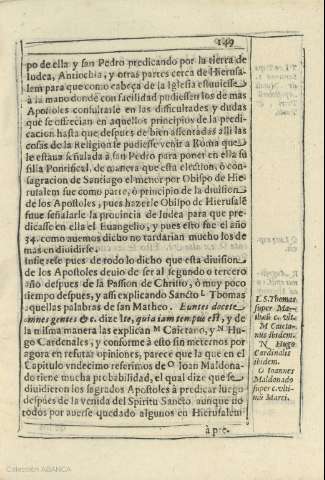 149
po de ella y san Pedro predicando por la tierra de
Iudea, Antiochia, y otras partes cerca de Hierusa-
lem para que como cabeça de la Iglesia estuuiesse
à la mano donde con facilidad pudiessen los de mas
Apostoles consultarle en las difficultades y dudas
que se offrecian en aquellos principios de la predi-
cacion hasta que despues de bien assentadas alli las
cosas de la Religion se pudiesse venir a Roma que
le estaua señalada à san Pedro para poner en ella su
silla Pontifical. de manera que esta election, ò con-
sagracion de Santiago el menor por Obispo de Hie-
rusalem fue como parte, ò principio de la diuision
de los Apostoles, pues hazerle Obispo de Hierusalē
fuue señalarle la prouincia de Iudea para que pre-
dicasse en ella el Euangelio, y pues esto fue el año
34. como auemos dicho no tardarian mucho los de
mas en diuidirse.
Infierese pues de todo lo dicho que esta diuision
de los Apostoles deuio de ser al segundo o tercero
año despues de la Passion de Christo, ò muy poco
tiempo despues, y assi explicando Sancto L Thomas
aquellas palabras de san Matheo. Euntes docete
omnes gentes &c. dize Ite, quia iam tempus est, y de
la misma manera las explican M Caietano, y N Hu-
go Cardenales, y conforme à esto sin meternos por
agora en refutar opiniones, parece que la que en el
Capitulo vndecimo referimos de O Ioan Maldona-
do tiene mucha probabilidad, el qual dize que se
diuidieron los sagrados Apostoles à predicar luego
despues de la venida del Spiritu Sancto aunque no
todos por auerse quedado algunos en Hierusalem
à pre-
L S. Thomas
super Mat-
thæū c. vlt.
M Caieta-
nus ibidem.
N Hugo
Cardinalis
ibidem.
O Ioannes
Maldonado
super c. vlti-
mū Marci.
Colección ABANCA